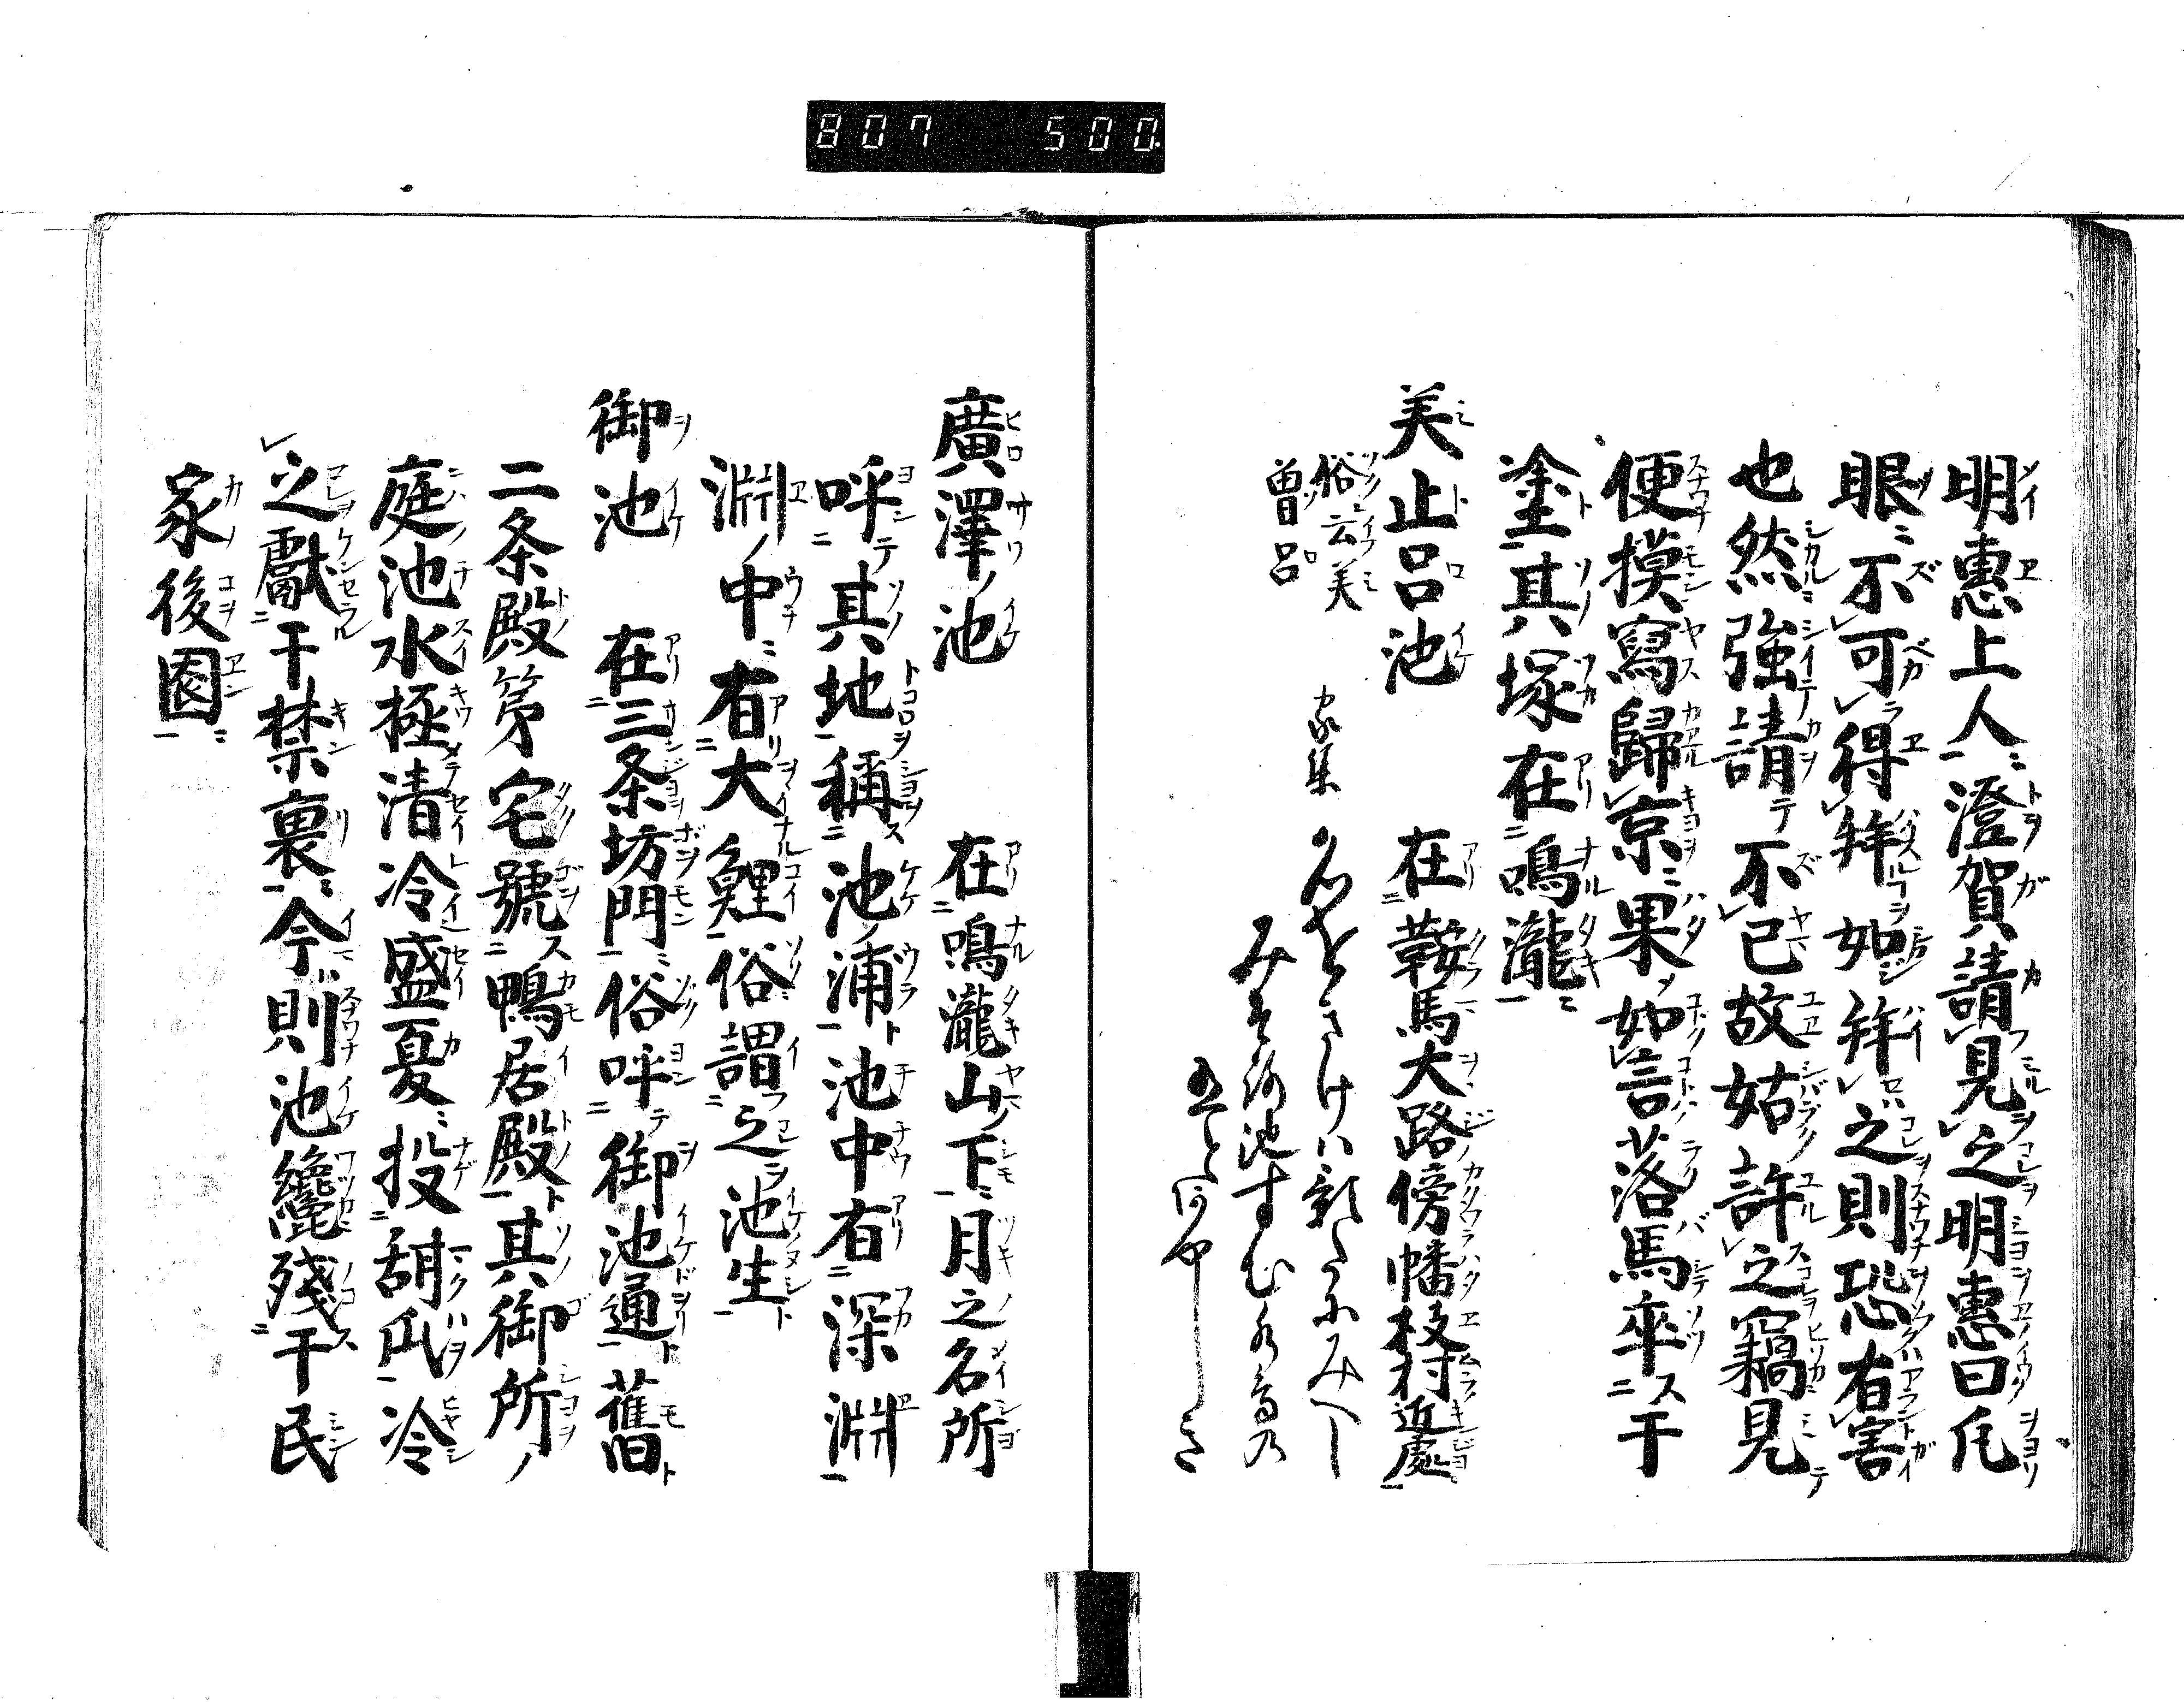 807 500
明惠上人澄賀請見之明惠曰凢
眼不可得拜如拜之則恐有害
也然強請不已故姑許之竊見
便摸寫歸京果如言落馬卒于
塗其塚在鳴瀧
美止呂池 在鞍馬大路傍幡枝村近處
俗云美
曽呂
家集 名をきけハ影たにみへし
みそろ池すむ水鳥の
廣澤ノ池 在鳴瀧山下月之名所
呼其地稱池ノ浦池中有深淵
淵ノ中有大鯉俗謂之池生
御池 在三条坊門俗呼御池通舊
二条殿第宅號鴨居殿其御所ノ
庭池水極清冷盛夏投甜瓜冷
之獻于禁裏今則池纔殘于民
家後園